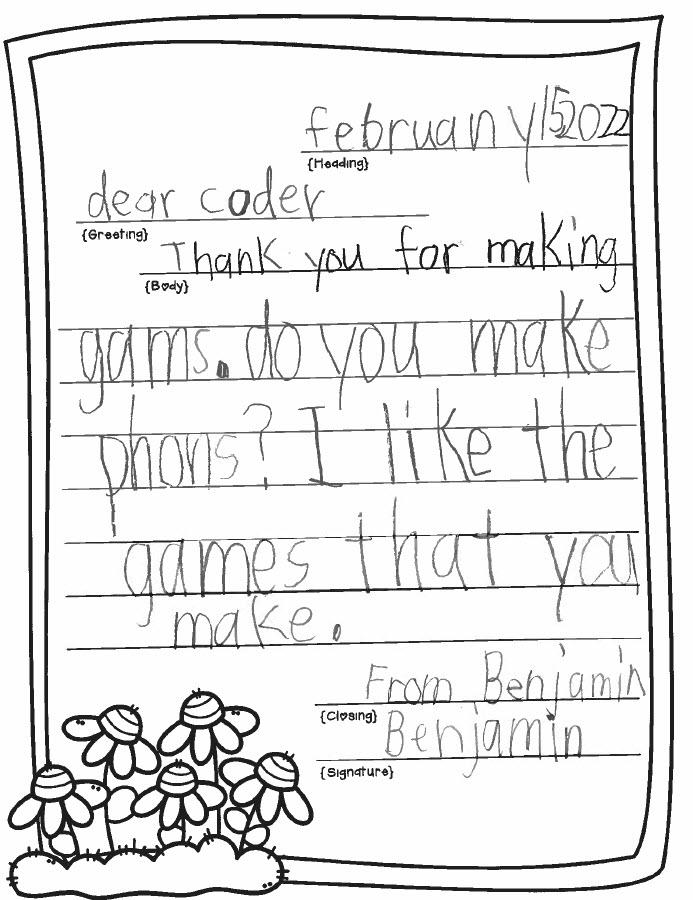 february 15 2022
{Heading}
dear coder
{Greeting}
Thank you for making
{Body}
gams. do you make
phons? I like the
games that you
make.
From Benjamin
{Closing}
Benjamin
{Signature}